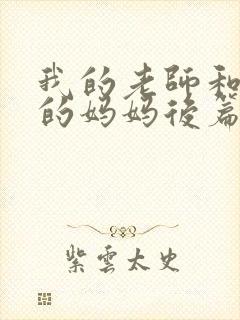 我的老師和
的妈妈後篇
紫雲太史